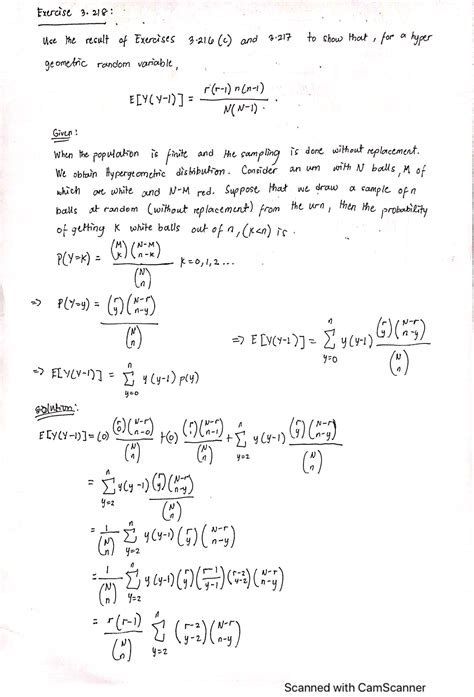 Exercise 3.218:
Use the result of Exercises 3.216 (c) and 3.217 to show that, for a hyper
geometric random variable,
E[Y(Y-1)] = r(r-1) n(n-1) / N(N-1) .
Given:
When the population is finite and the sampling is done without replacement.
We obtain Hypergeometric distribution. Consider an urn with N balls, M of
which are white and N-M red. Suppose that we draw a sample of n
balls at random (without replacement) from the urn, then the probability
of getting k white balls out of n, (k<n) is .
P(Y=k) = (M k)(N-M n-k) / (N n) k=0,1,2 ...
=> P(Y=y) = (r y)(N-r n-y) / (N n)
=> E[Y(Y-1)] = Σ_{y=0}^{n} y(y-1) (r y)(N-r n-y) / (N n)
=> E[Y(Y-1)] = Σ_{y=0}^{n} y(y-1) p(y)
solution:
E[Y(Y-1)] = (0) (r 0)(N-r n-0) / (N n) + (0) (r 1)(N-r n-1) / (N n) + Σ_{y=2}^{n} y(y-1) (r y)(N-r n-y) / (N n)
= Σ_{y=2}^{n} y(y-1) (r y)(N-r n-y) / (N n)
= 1 / (N n) Σ_{y=2}^{n} y(y-1) (r y)(N-r n-y)
= 1 / (N n) Σ_{y=2}^{n} y(y-1) (r/y)(r-1 / y-1)(r-2 y-2)(N-r n-y)
= r(r-1) / (N n) Σ_{y=2}^{n} (r-2 y-2)(N-r n-y)
Scanned with CamScanner